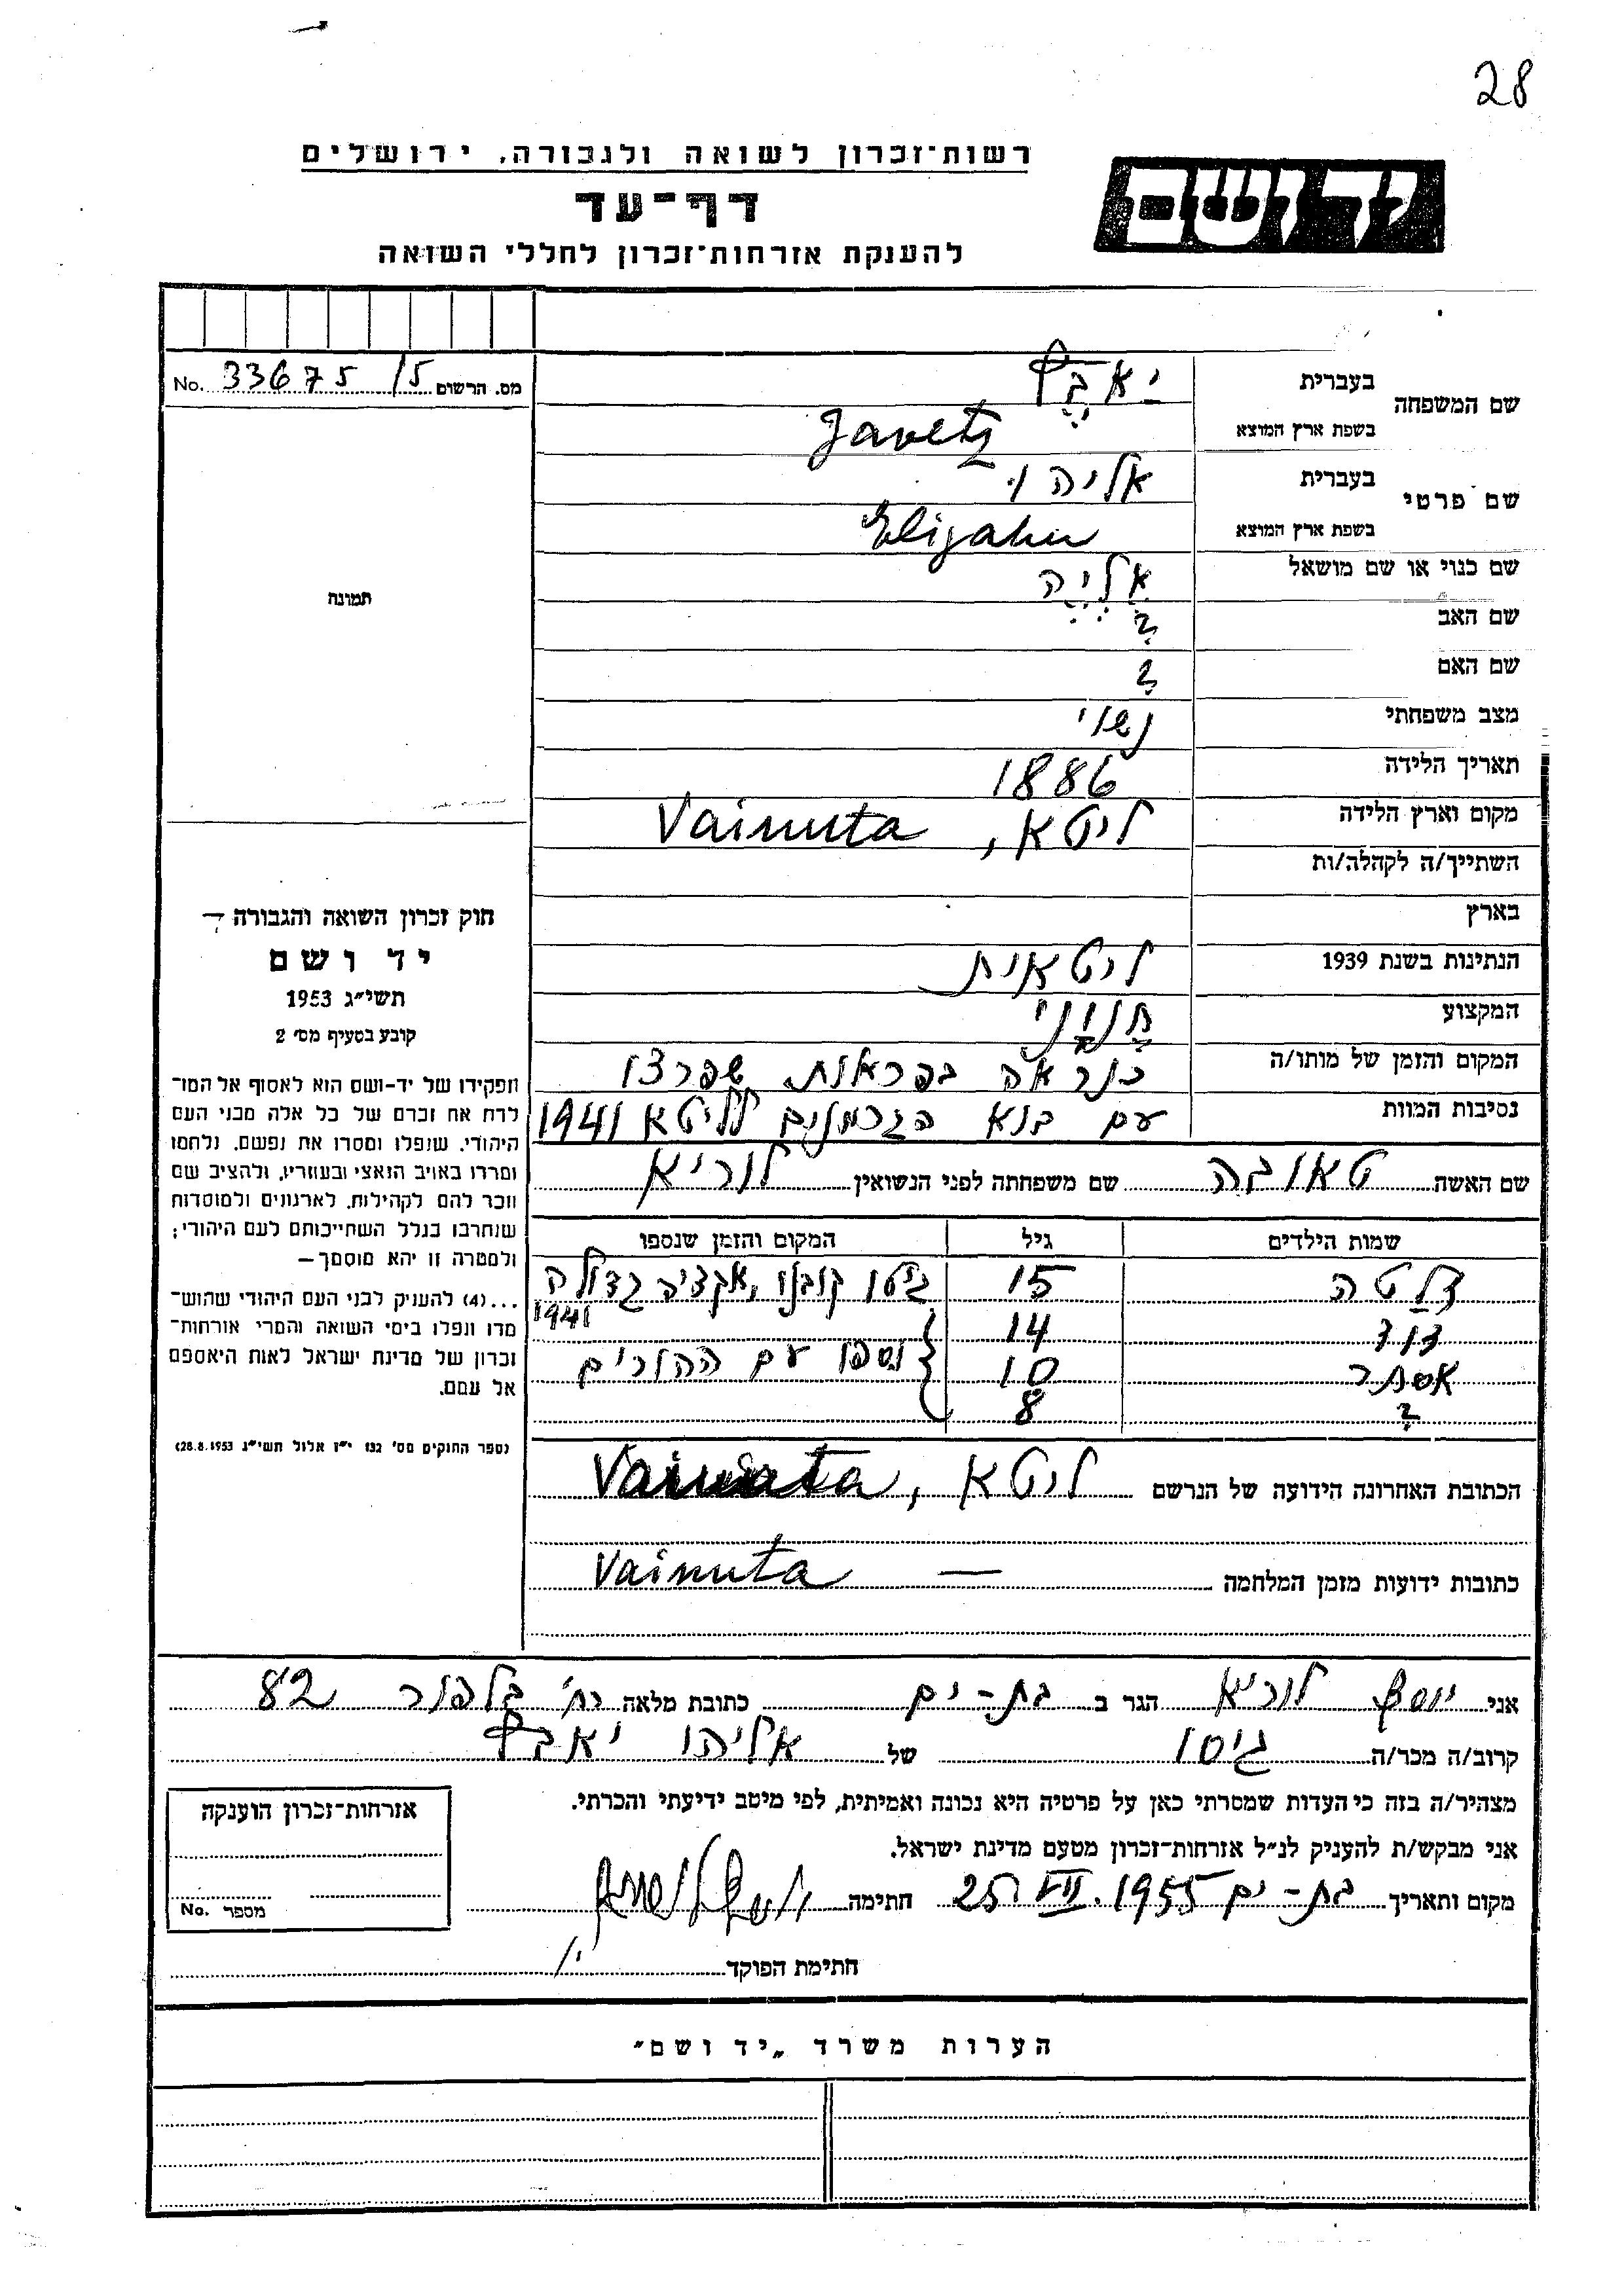 28
רשות־זכרון לשואה ולגבורה, ירושלים
יד ושם
דף־עד
להענקת אזרחות־זכרון לחללי השואה
מס. הרשום 33675 /5 No.
שם המשפחה
בעברית יאבץ
בשפת ארץ המוצא Javetz
שם פרטי
בעברית אליהו
בשפת ארץ המוצא Elijahu
שם כנוי או שם מושאל אליה
שם האב ?
שם האם ?
מצב משפחתי נשוי
תאריך הלידה 1886
מקום וארץ הלידה ליטא, Vainuta
השתייך/ה לקהלה/ות
בארץ
הנתינות בשנת 1939 ליטאית
המקצוע חנוני
המקום והזמן של מותו/ה כנראה בפראות שפרצו
נסיבות המוות עם בוא הגרמנים לליטא 1941
תמונה
חוק זכרון השואה והגבורה —
יד ושם
תשי״ג 1953
קובע בסעיף מס׳ 2
תפקידו של יד-ושם הוא לאסוף אל המו־
לדת את זכרם של כל אלה מבני העם
היהודי, שנפלו ומסרו את נפשם, נלחמו
ומרדו באויב הנאצי ובעוזריו, ולהציב שם
וזכר להם לקהילות, לארגונים ולמוסדות
שנחרבו בגלל השתייכותם לעם היהודי;
ולמטרה זו יהא מוסמך—
...(4) להעניק לבני העם היהודי שהוש־
מדו ונפלו בימי השואה והמרי אזרחות־
זכרון של מדינת ישראל לאות היאספם
אל עמם.
(ספר החוקים מס׳ 132 י״ז אלול תשי״ג 28.8.1953)
שם האשה טאובה שם משפחתה לפני הנשואין לוריא
שמות הילדים גיל המקום והזמן שנספו
זלטה 15 גיטו קובנו, אקציה גדולה 1941
דוד 14
אסתר 10 נספו עם ההורים
? 8
הכתובת האחרונה הידועה של הנרשם ליטא, Vainuta
כתובות ידועות מזמן המלחמה — Vainuta
אני יוסף לוריא הגר ב בת-ים כתובת מלאה רח׳ בלפור 82
קרוב/ה מכר/ה גיסו של אליהו יאבץ
מצהיר/ה בזה כי העדות שמסרתי כאן על פרטיה היא נכונה ואמיתית, לפי מיטב ידיעתי והכרתי.
אני מבקש/ת להעניק לנ״ל אזרחות־זכרון מטעם מדינת ישראל.
מקום ותאריך בת-ים 25.VII.1955 חתימה
חתימת הפוקד
אזרחות־זכרון הוענקה
מספר No.
הערות משרד „יד ושם״